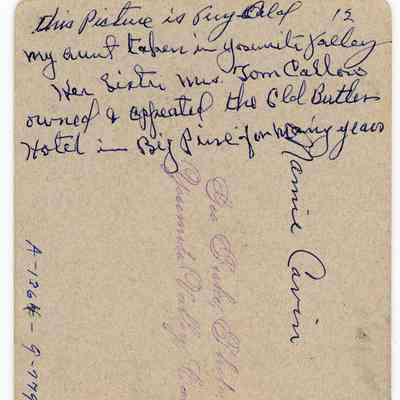 this Picture is Very Old is
my aunt taken in yosemite Valley
Her Sister Mrs. Tom
owned & the Old Butler
Hotel in Big Pine for many years
Mamie Cavin
Geo Fiske Photo
Yosemite Valley